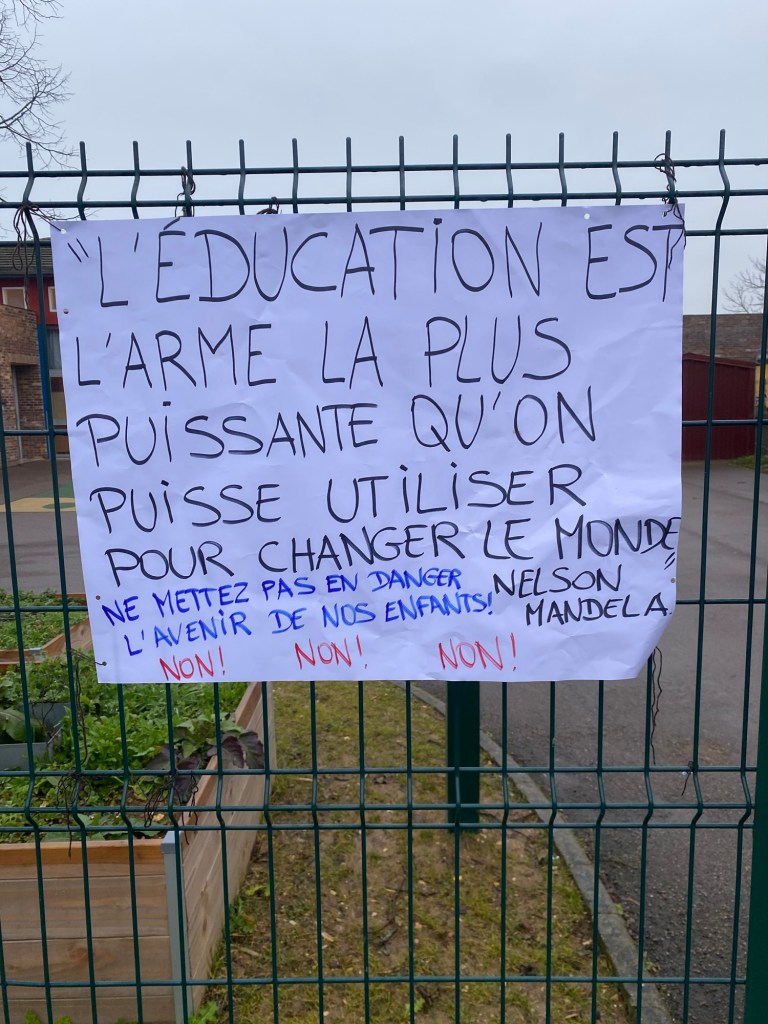 "L'ÉDUCATION EST
L'ARME LA PLUS
PUISSANTE QU'ON
PUISSE UTILISER
POUR CHANGER LE MONDE"
NELSON
MANDELA.
NE METTEZ PAS EN DANGER
L'AVENIR DE NOS ENFANTS!
NON! NON! NON!